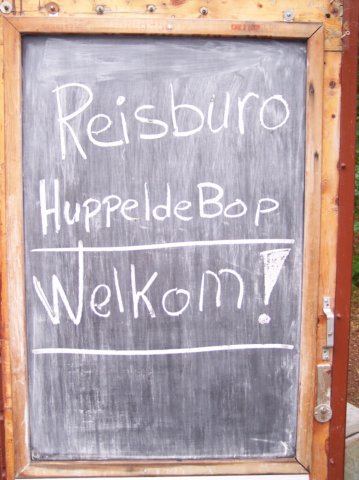 Reisburo
HuppeldeBop
Welkom!